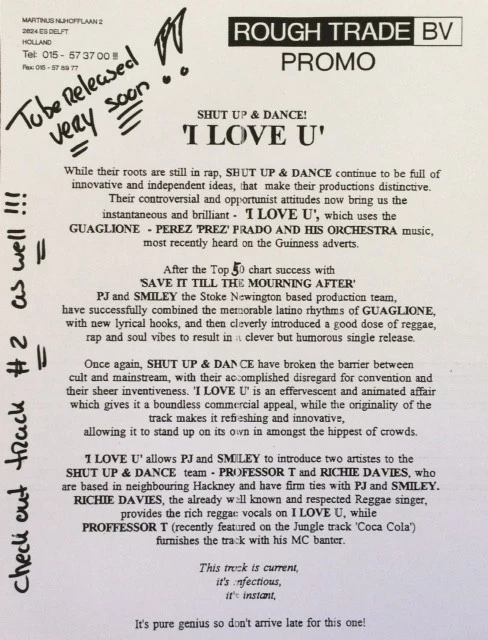 MARTINUS NIJHOFFLAAN 2
2624 ES DELFT
HOLLAND
Tel: 015 - 57 37 00 !!!
Fax: 015 - 57 89 77
ROUGH TRADE BV
PROMO
To be Released
very soon
SHUT UP & DANCE!
'I LOVE U'
While their roots are still in rap, SHUT UP & DANCE continue to be full of
innovative and independent ideas, that make their productions distinctive.
Their controversial and opportunist attitudes now bring us the
instantaneous and brilliant - 'I LOVE U', which uses the
GUAGLIONE - PEREZ 'PREZ' PRADO AND HIS ORCHESTRA music,
most recently heard on the Guinness adverts.
After the Top 50 chart success with
'SAVE IT TILL THE MOURNING AFTER'
PJ and SMILEY the Stoke Newington based production team,
have successfully combined the memorable latino rhythms of GUAGLIONE,
with new lyrical hooks, and then cleverly introduced a good dose of reggae,
rap and soul vibes to result in a clever but humorous single release.
Once again, SHUT UP & DANCE have broken the barrier between
cult and mainstream, with their accomplished disregard for convention and
their sheer inventiveness. 'I LOVE U' is an effervescent and animated affair
which gives it a boundless commercial appeal, while the originality of the
track makes it refreshing and innovative,
allowing it to stand up on its own in amongst the hippest of crowds.
'I LOVE U' allows PJ and SMILEY to introduce two artistes to the
SHUT UP & DANCE team - PROFESSOR T and RICHIE DAVIES, who
are based in neighbouring Hackney and have firm ties with PJ and SMILEY.
RICHIE DAVIES, the already well known and respected Reggae singer,
provides the rich reggae vocals on I LOVE U, while
PROFFESSOR T (recently featured on the Jungle track 'Coca Cola')
furnishes the track with his MC banter.
This track is current,
it's infectious,
it's instant,
It's pure genius so don't arrive late for this one!
check out track #2 as well !!!